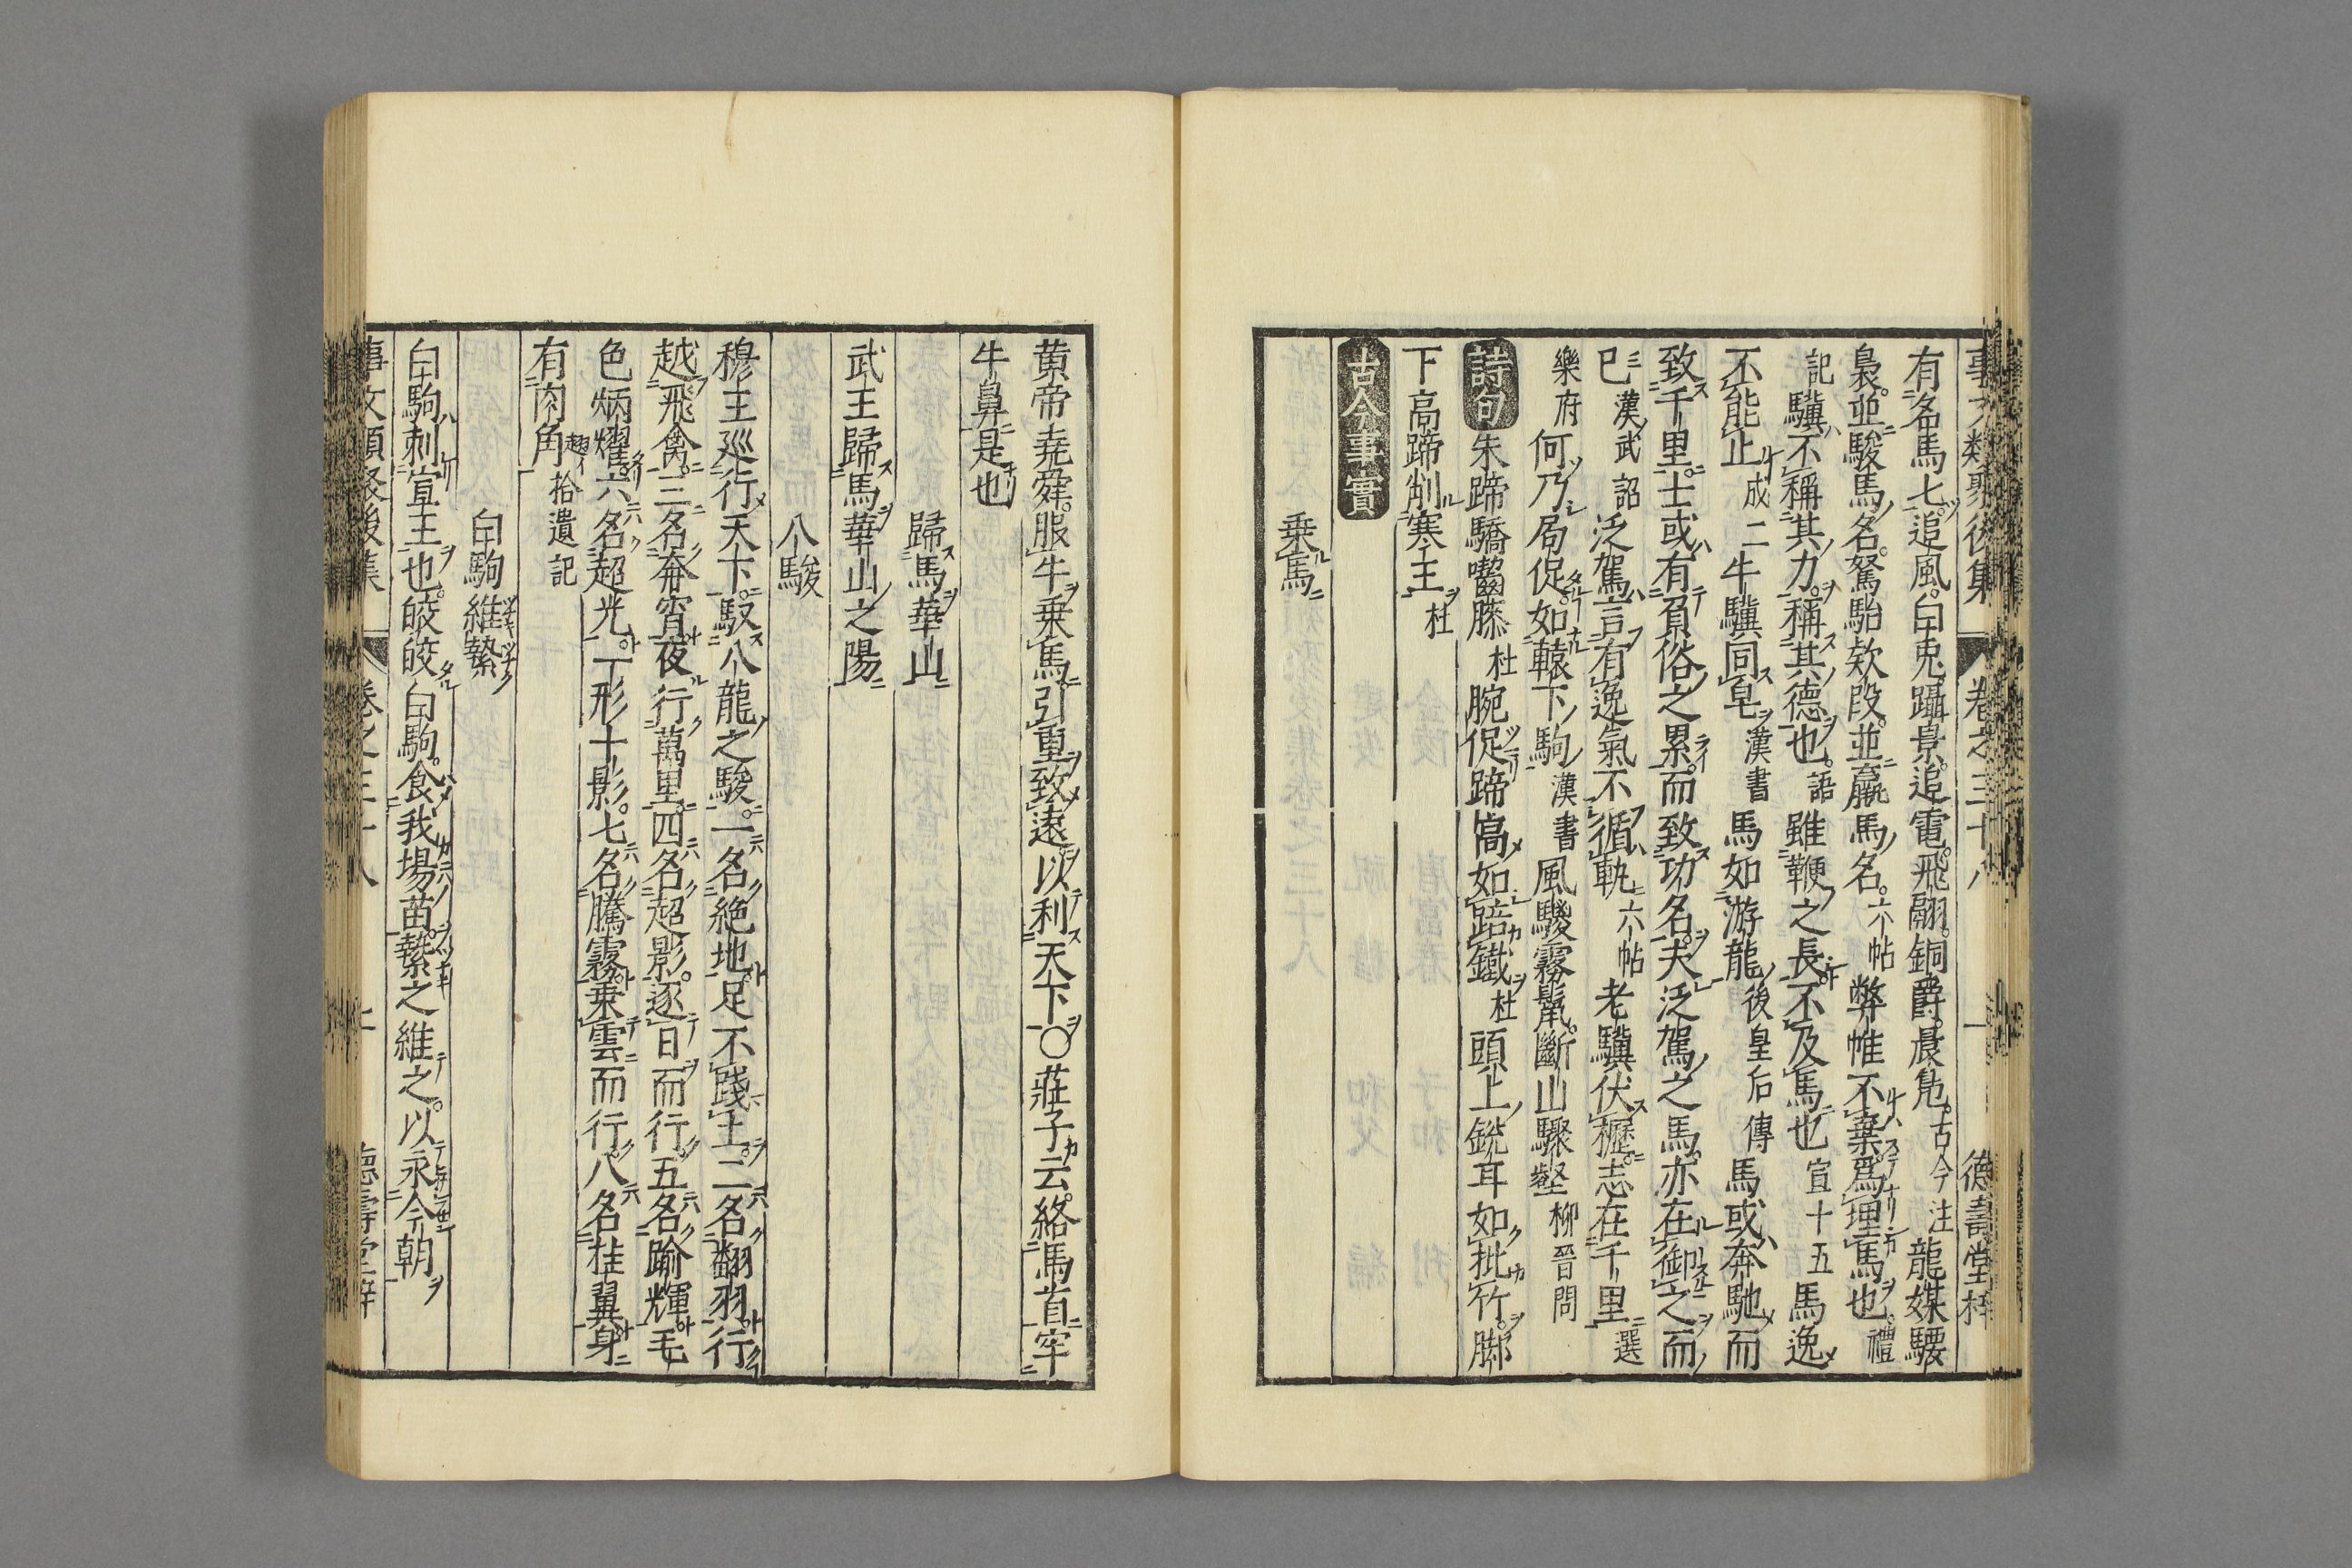 事文類聚後集 卷之三十八 德壽堂梓
有名馬七追風白兎躡景追電飛翮銅爵晨鳧古今注龍媒騕
裊並駿馬名駑駘欵段並羸馬名六帖弊帷不棄爲埋馬也禮
記驥不稱其力稱其德也語雖鞭之長不及馬也宣十五馬逸
不能止成二牛驥同皁漢書馬如游龍後皇后傳馬或奔馳而
致千里士或有負俗之累而致功名夫泛駕之馬亦在御之而
已漢武詔泛駕言有逸氣不循軌六帖老驥伏櫪志在千里選
樂府何乃局促如轅下駒漢書風駿霧鬛斷山驟壑柳晉問
詩句朱蹄驕囓膝杜腕促蹄高如踣鐵杜頭上銳耳如批竹脚
下高蹄削寒玉杜
古今事實
乗馬
黄帝堯舜服牛乗馬引重致遠以利天下〇莊子云絡馬首穿
牛鼻是也
歸馬華山
武王歸馬華山之陽
八駿
穆王巡行天下馭八龍之駿一名絶地足不踐土二名翻羽行
越飛禽三名奔宵夜行萬里四名超影逐日而行五名踰輝毛
色炳燿六名超光一形十影七名騰霧乗雲而行八名挂翼身
有肉角拾遺記
白駒維縶
白駒刺宣王也皎皎白駒食我場苗縶之維之以永今朝
事文類聚後集 卷之三十八 德壽堂梓